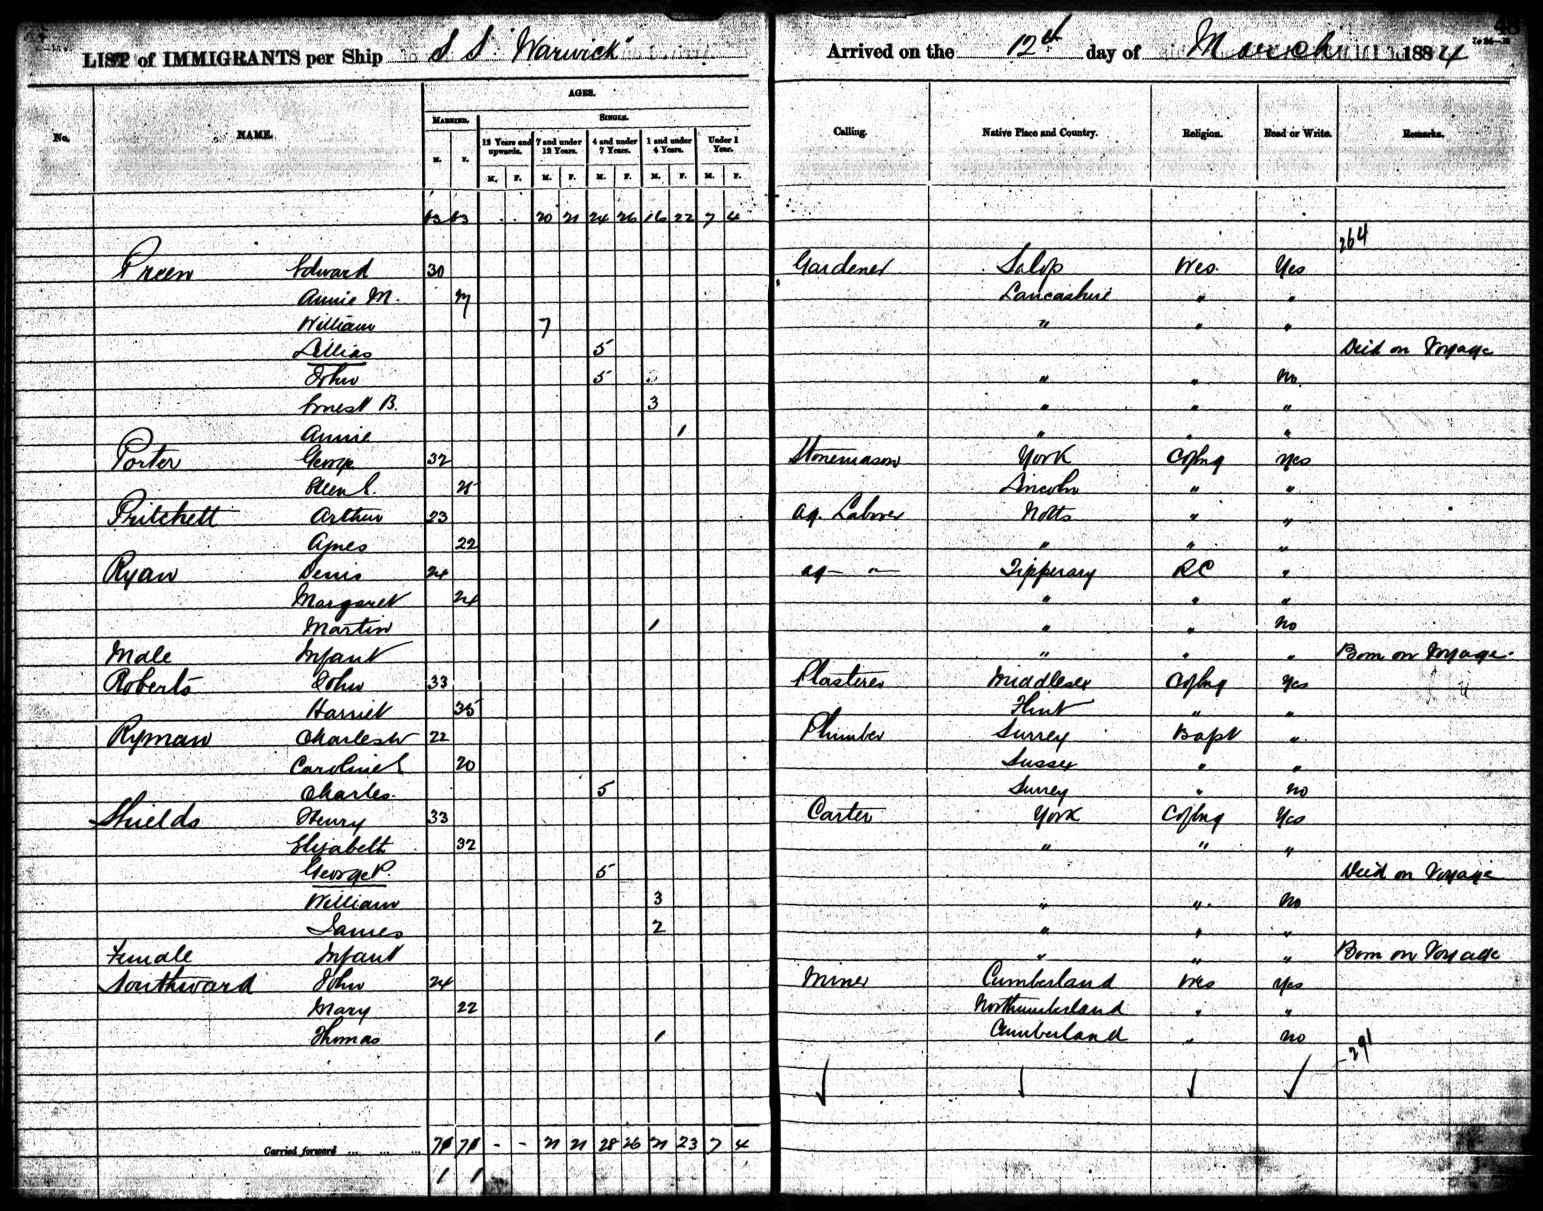 LIST of IMMIGRANTS per Ship S S "Warwick" Arrived on the 12th day of March 1884
No. NAME. AGES. Calling. Native Place and Country. Religion. Read or Write. Remarks.
MARRIED. SINGLE.
M. F. 12 Years and upwards. 7 and under 12 Years. 4 and under 7 Years. 1 and under 4 Years. Under 1 Year.
M. F. M. F. M. F. M. F. M. F.
63 63 . . 20 21 24 26 16 22 7 4
264
Preen Edward 30 Gardener Salop Wes. Yes
Annie M. Lancashire " "
William 7 " " "
Lillias 5 Deid on Voyage
John 5 " " No.
Ernest B. 3 " " "
Annie 1 " " "
Porter George 32 Stonemason York CofEng Yes
Ellen E. Lincoln " "
Pritchett Arthur 23 Ag. Laborer Notts " "
Agnes 22 " " "
Ryan Denis 24 ag - " - Tipperary RC "
Margaret 24 " " "
Martin 1 " " No
Male Infant " " " Born on Voyage.
Roberts John 33 Plasterer Middlesex CofEng Yes
Harriet 35 Flint " "
Ryman Charles W 22 Plumber Surrey Bapt "
Caroline E 20 Sussex " "
Charles. 5 Surrey " No
Shields Henry 33 Carter York CofEng Yes
Elizabeth 32 " " "
George P. 5 Deid on Voyage
William 3 " " No
James 2 " " "
Female Infant " " " Born on Voyage
Southward John 24 Miner Cumberland Wes Yes
Mary 22 Northumberland " "
Thomas 1 Cumberland " No
291
Carried forward ... ... ... 71 71 - - 21 21 28 26 21 23 7 4
1 1